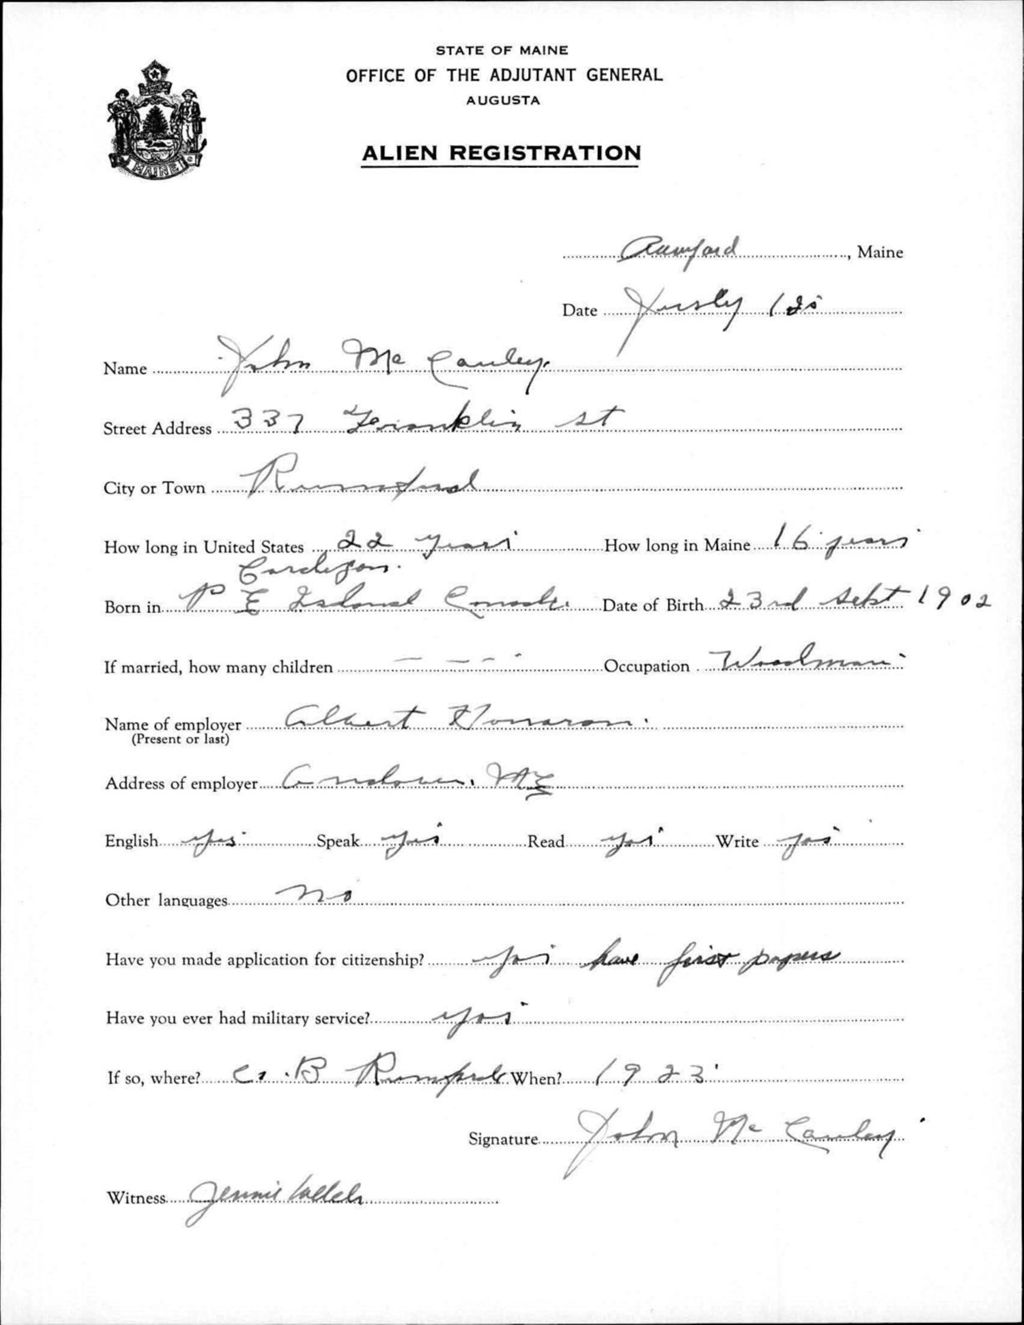 STATE OF MAINE
OFFICE OF THE ADJUTANT GENERAL
AUGUSTA
MAINE
ALIEN REGISTRATION
Rumford, Maine
Date July 1
Name John Mc Cauley
Street Address 337 Franklin st
City or Town Rumford
How long in United States 22 years How long in Maine 16 years
Cardigan.
Born in P E Island Canada. Date of Birth 23rd Sept 1902
If married, how many children - - - - Occupation Woodman
Name of employer Albert
(Present or last)
Address of employer Andover, ME
English yes Speak yes Read yes Write yes
Other languages no
Have you made application for citizenship? yes have first papers
Have you ever had military service? yes
If so, where? Co. B Rumford When? 1923
Signature John Mc Cauley
Witness Jennie Welch